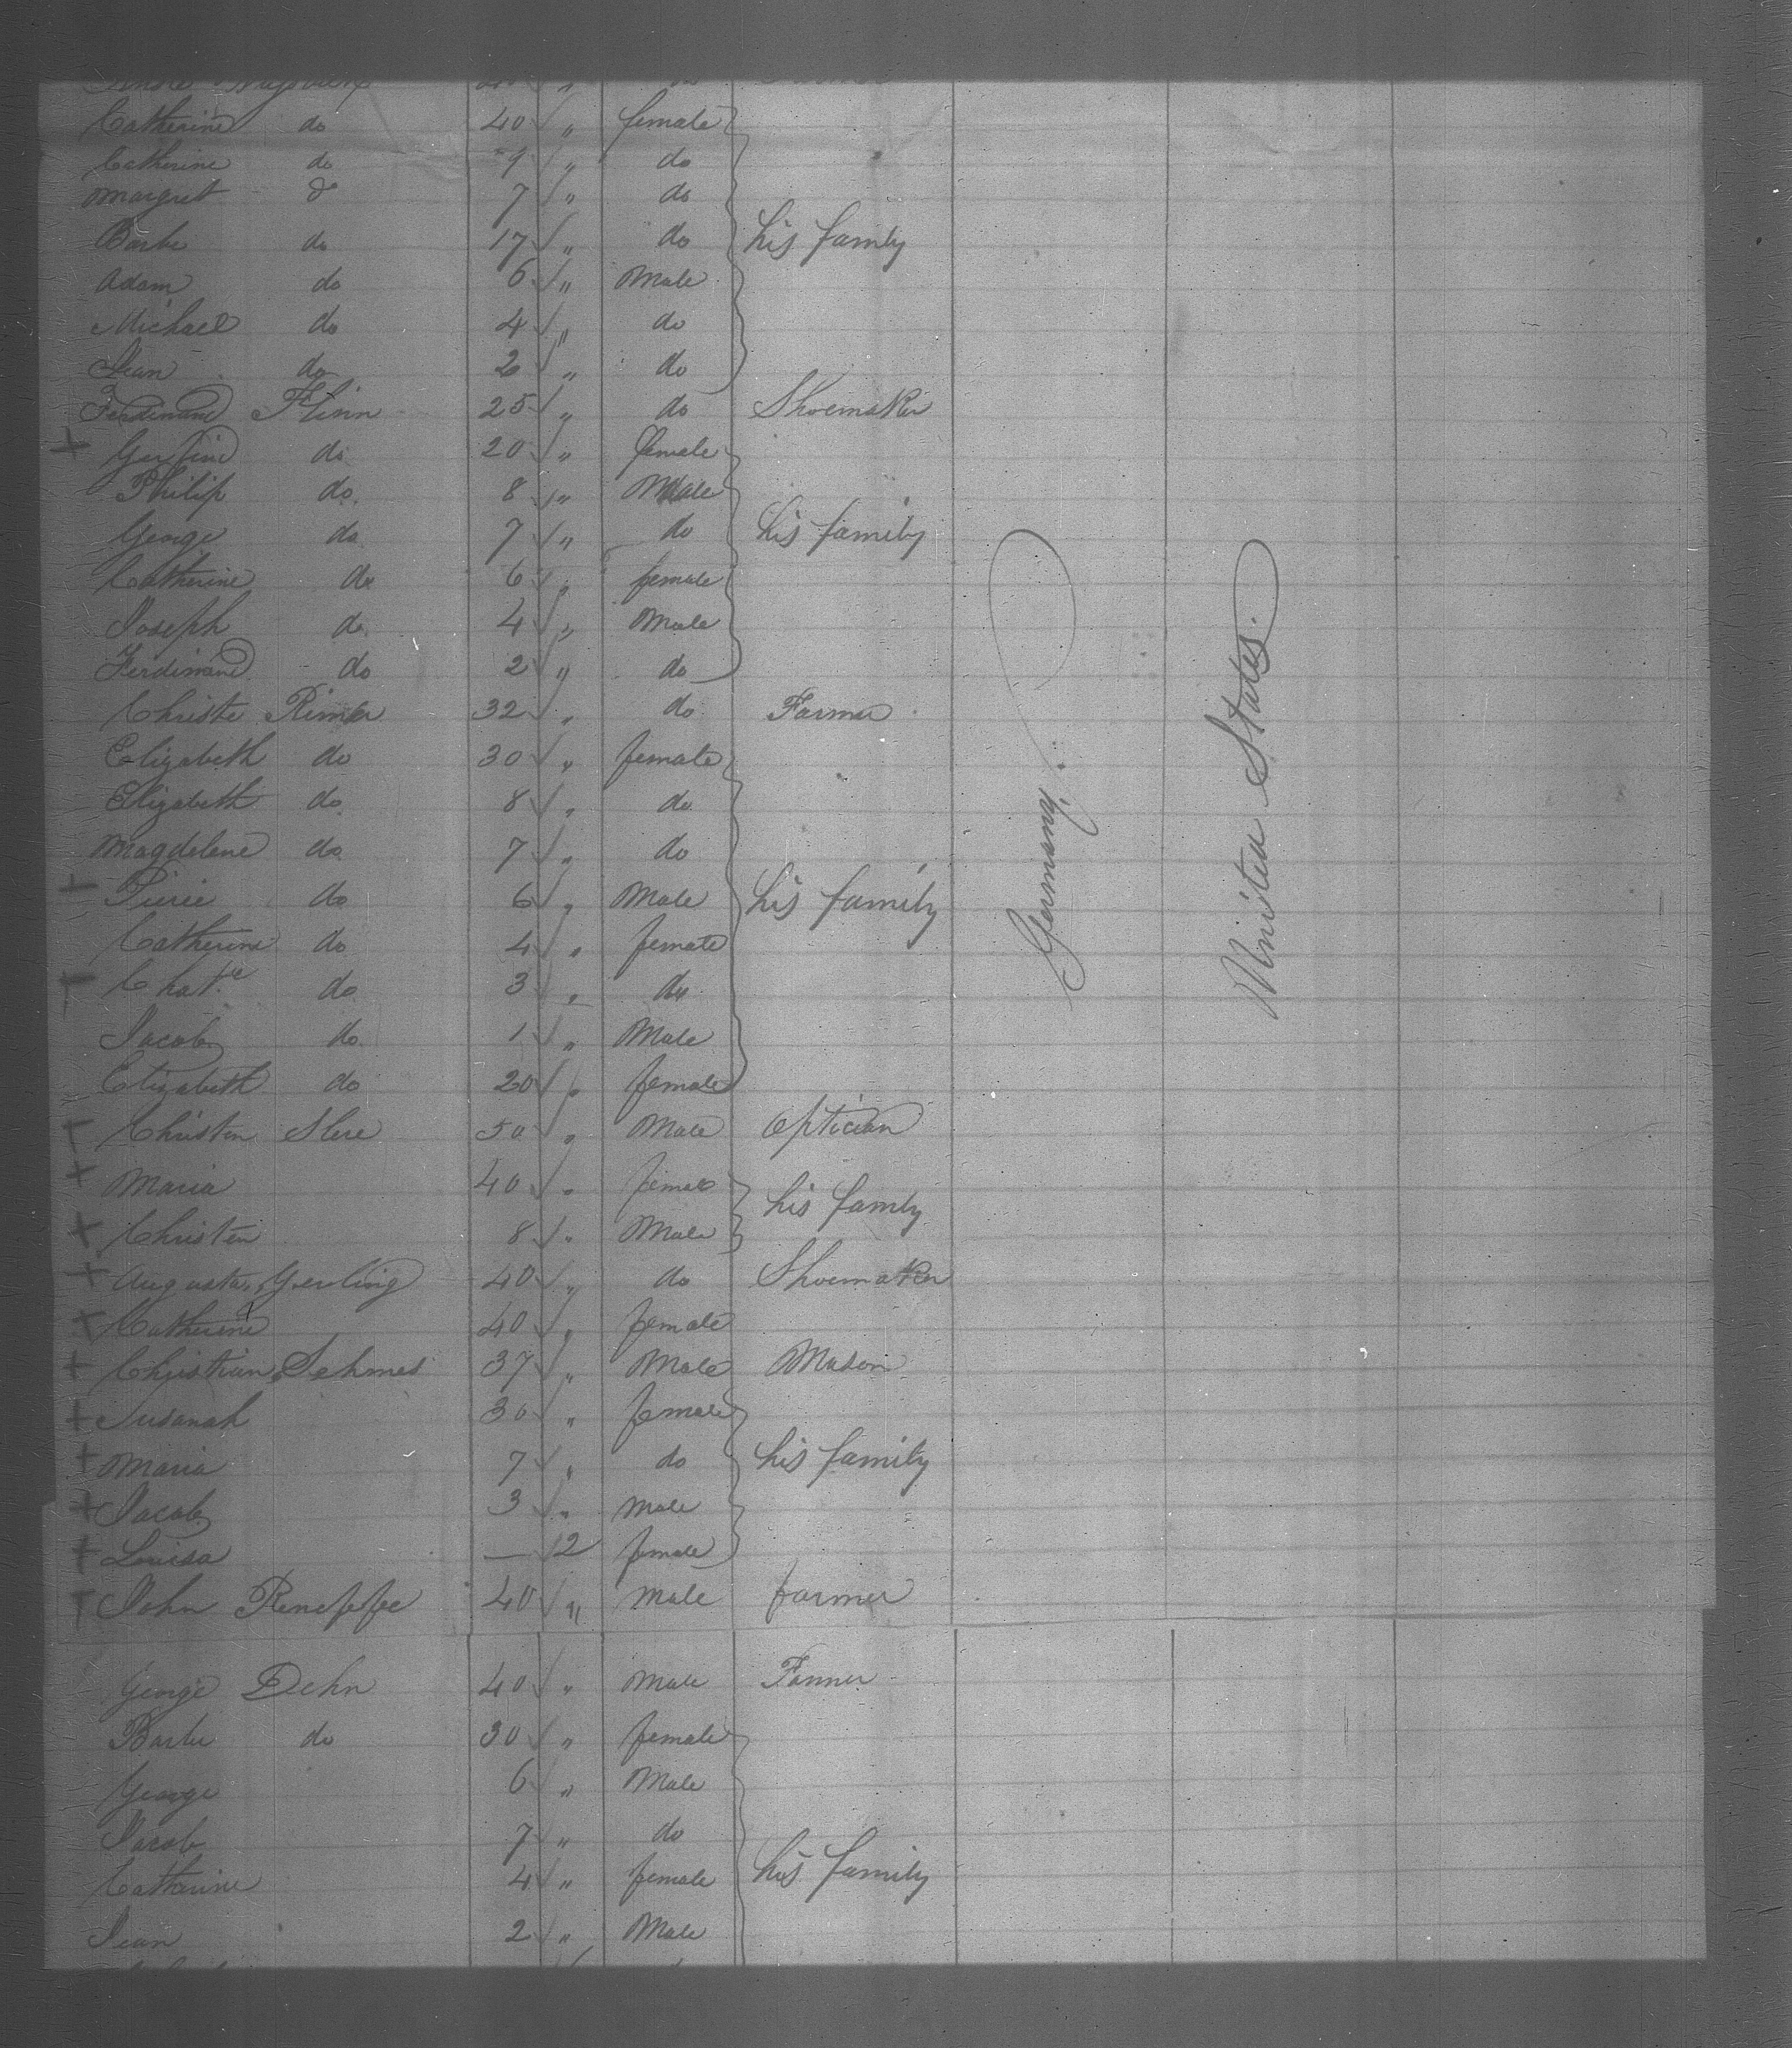 Catherine do 40 " female
Catherine do 9 " do
Margret do 7 " do
Barbe do 17 " do his family
Adam do 6 " Male
Michael do 4 " do
Jean do 2 " do
Ferdinand Flinn 25 " do Shoemaker
do 20 " female
Philip do. 8 " Male
George do 7 " do his family
Catherine do 6 " female
Joseph do 4 " Male
Ferdinand do 2 " do
Christe Rimer 32 " do Farmer
Elizabeth do 30 " female
Elizabeth do 8 " do
Magdelene do 7 " do
Pierre do 6 " Male his family
Catherine do 4 " female
Chat.e do 3 " do
Jacob do 1 " Male
Elizabeth do 20 " female
Christen 50 " Male Optician
Maria 40 " female his family
Christen 8 " Male
Augustus Gerling 40 " do Shoemaker
Catherine 40 " female
Christian Schmes 37 " Male Mason
Susanah 30 " female
Maria 7 " do his family
Jacob 3 " Male
Louisa — 2 female
John 40 " Male farmer
Germany.
United States.
George Dehn 40 " Male Farmer
Barbe do 30 " female
George 6 " Male
Jacob 7 " do
Catherine 4 " female his family
Jean 2 " Male